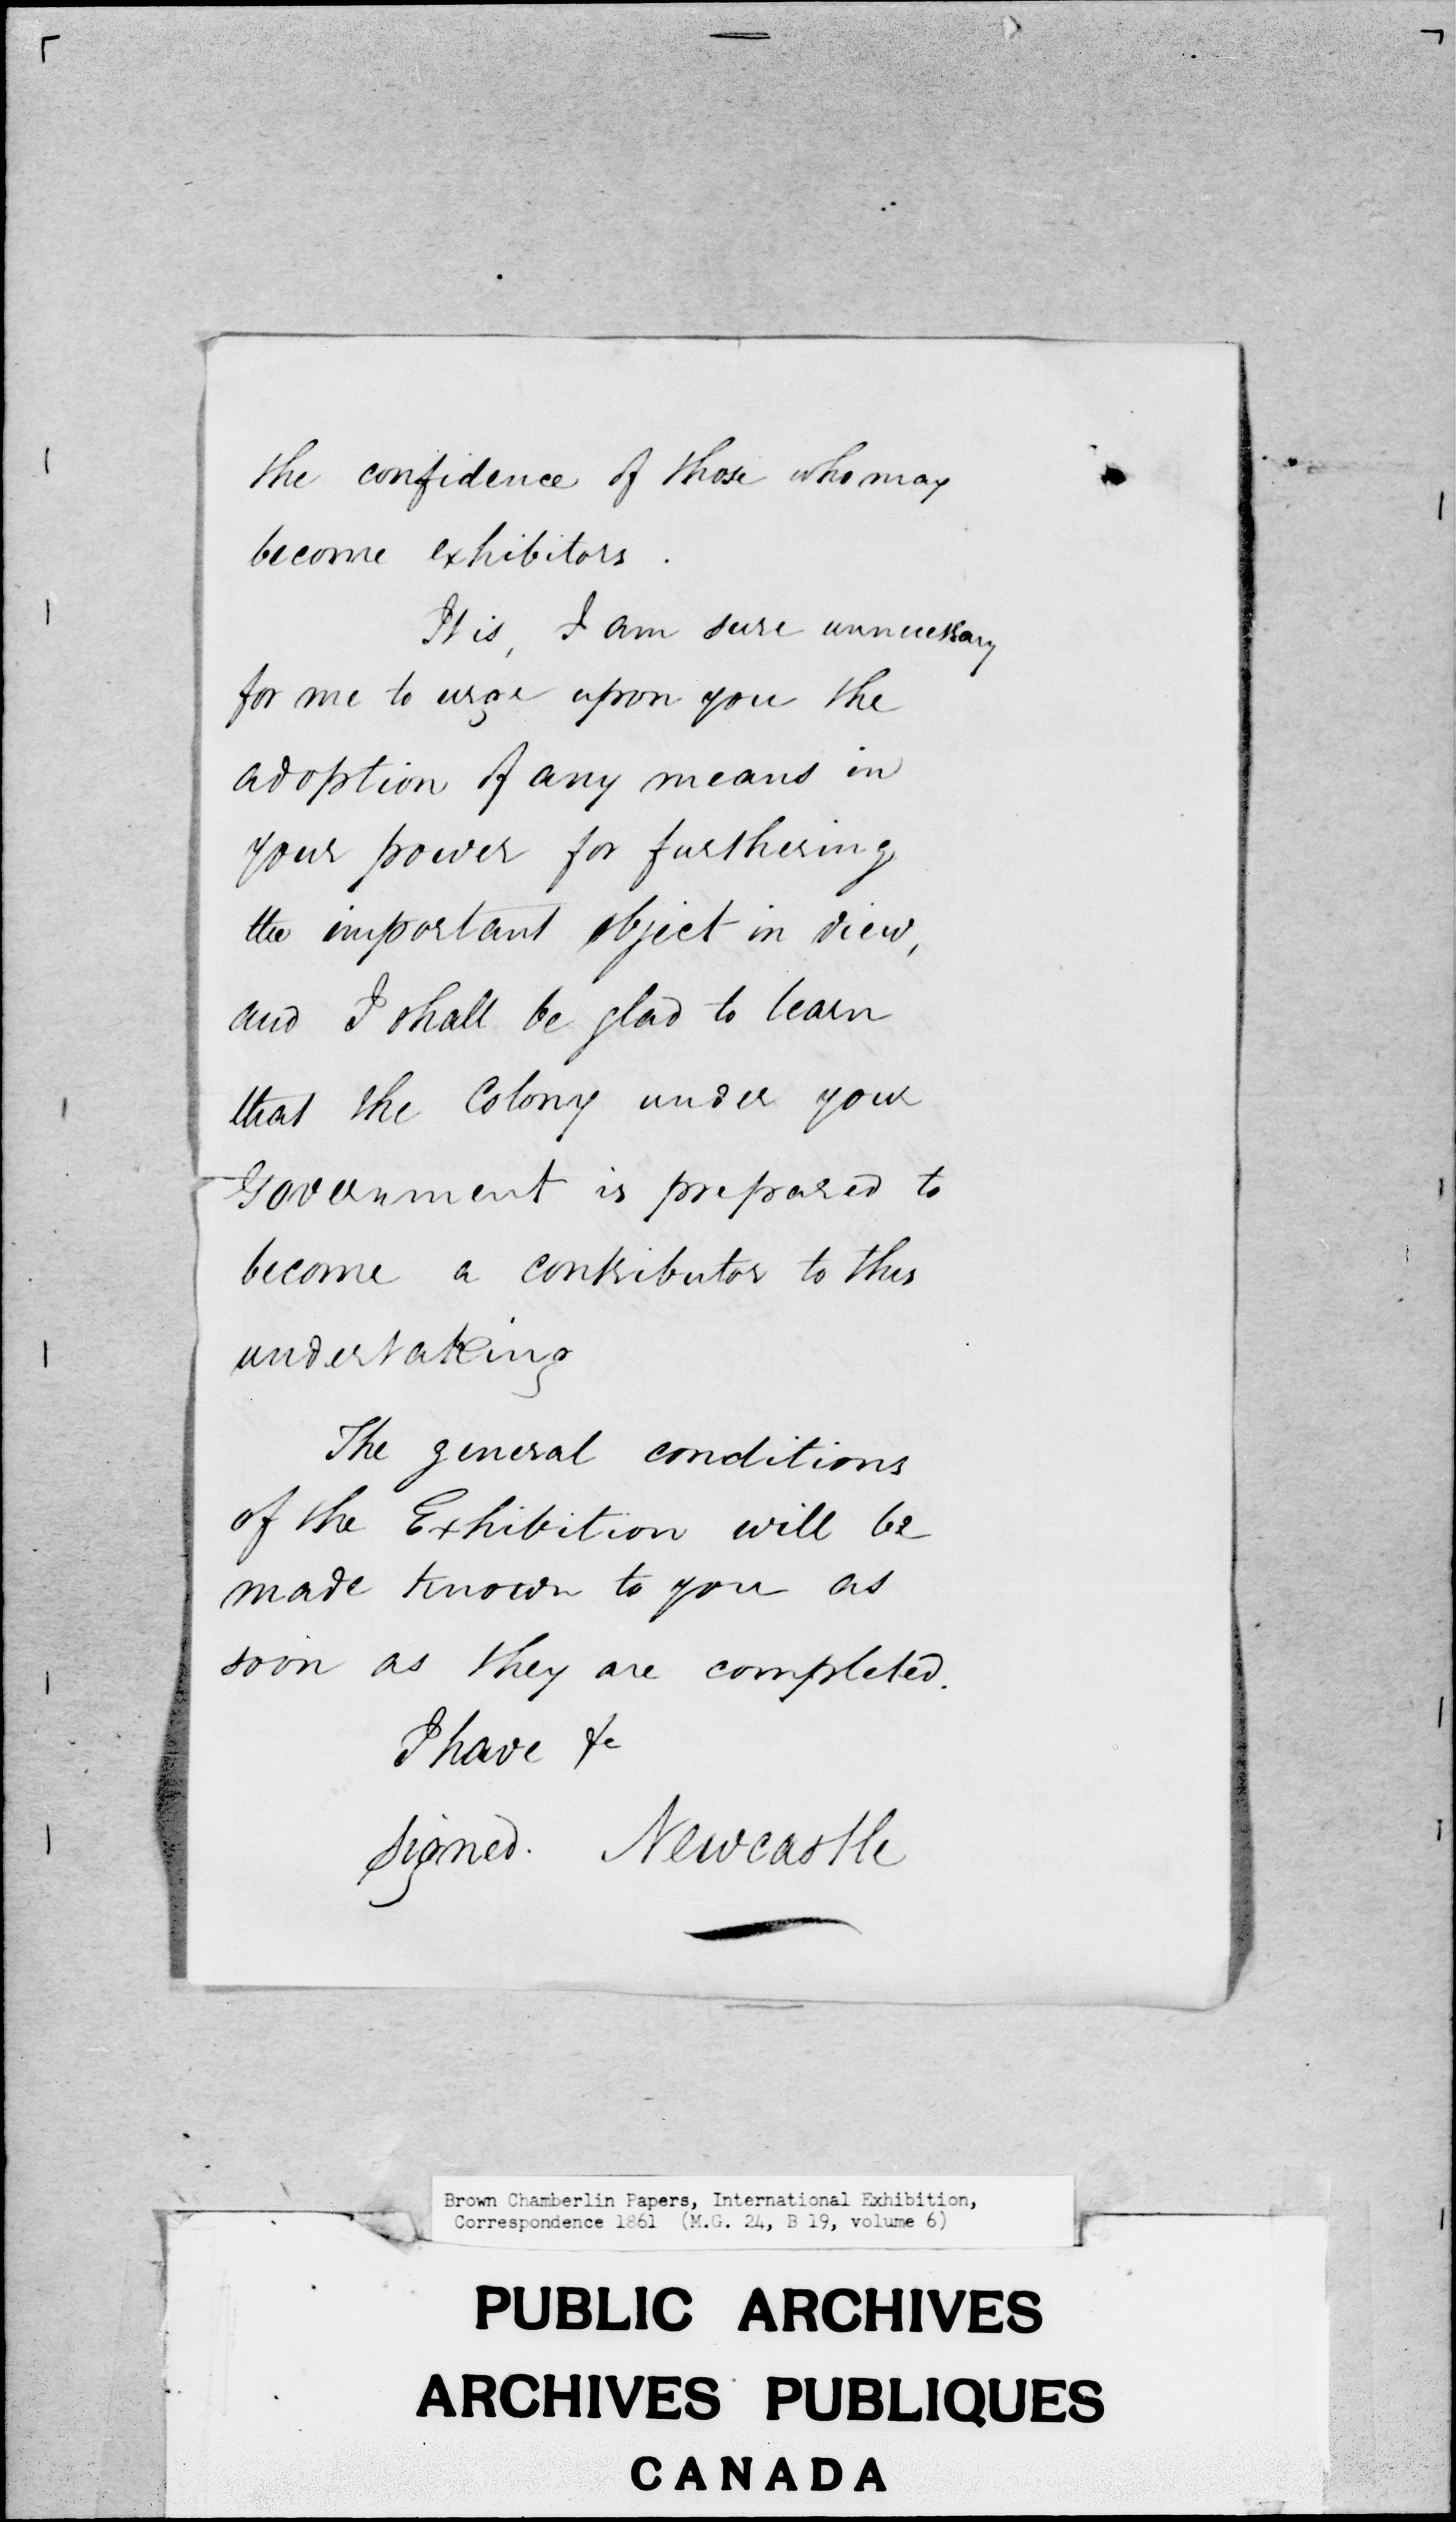 the confidence of those who may
become exhibitors.
It is, I am sure unnecessary
for me to urge upon you the
adoption of any means in
your power for furthering
the important object in view,
and I shall be glad to learn
that the Colony under your
Government is prepared to
become a contributor to this
undertaking
The general conditions
of the Exhibition will be
made known to you as
soon as they are completed.
I have &c
signed. Newcastle
Brown Chamberlin Papers, International Exhibition,
Correspondence 1861 (M.G. 24, B 19, volume 6)
PUBLIC ARCHIVES
ARCHIVES PUBLIQUES
CANADA